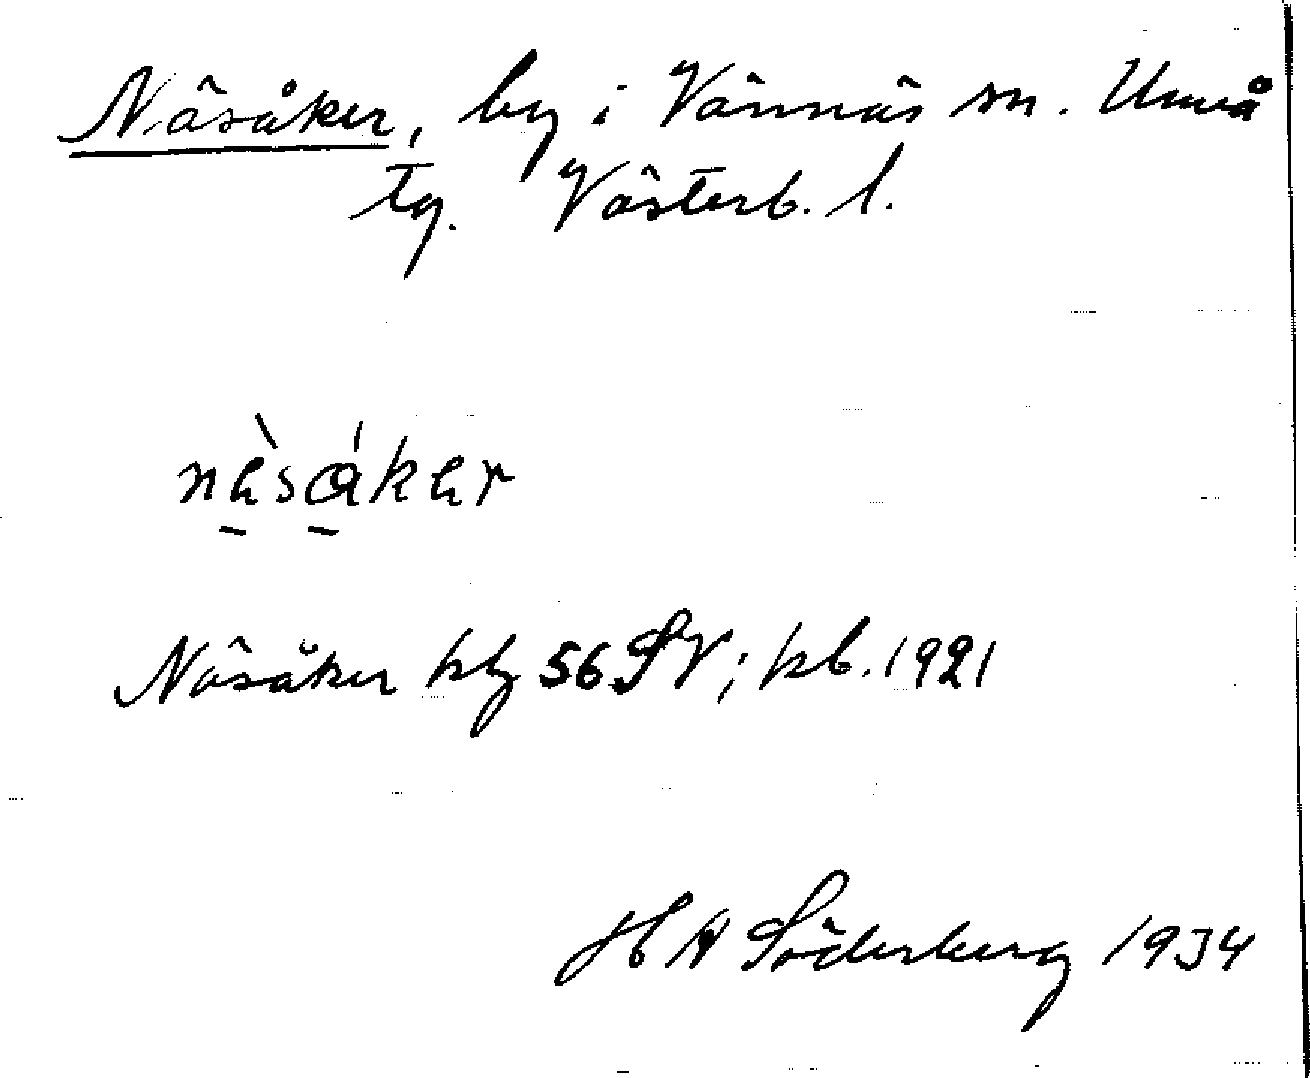 Näsåker, by i Vännäs sn. Umeå
tg. Västerb. l.
nàsákar
Näsåker kbg 56 SV; kb. 1921
H A Söderberg 1934